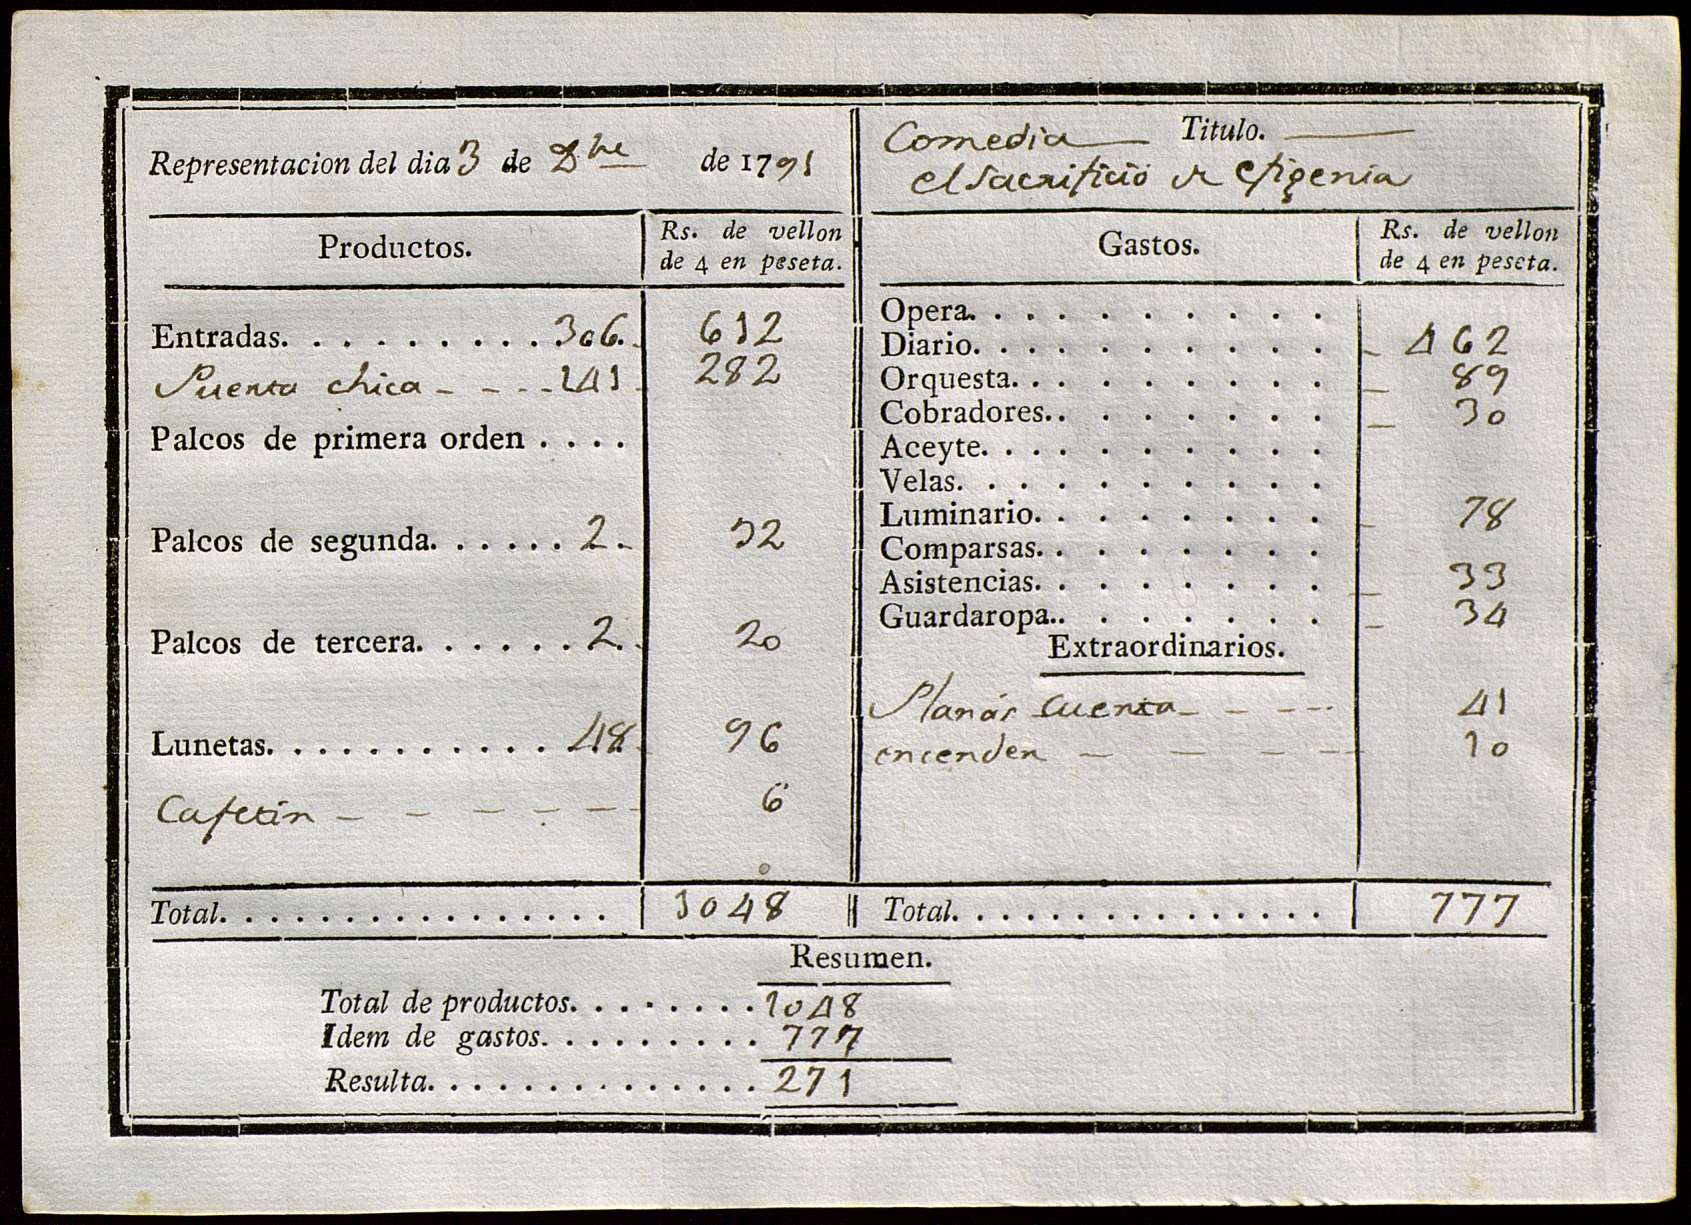 Representacion del dia 3 de Dbre de 1791
Comedia Titulo.
el Sacrificio de Efigenia
Productos. Rs. de vellon de 4 en peseta.
Entradas. . . . . . . . . . 306. 612
Puerta chica - - - - 141 282
Palcos de primera orden . . . .
Palcos de segunda. . . . . . 2. 32
Palcos de tercera. . . . . . 2. 20
Lunetas. . . . . . . . . . . . 48. 96
Cafetin - - - - - - 6
Total. . . . . . . . . . . . . . . . 1048
Gastos. Rs. de vellon de 4 en peseta.
Opera. . . . . . . . . .
Diario. . . . . . . . . . 462
Orquesta. . . . . . . . . 89
Cobradores. . . . . . . . 30
Aceyte. . . . . . . . . .
Velas. . . . . . . . . .
Luminario. . . . . . . . 78
Comparsas. . . . . . . .
Asistencias. . . . . . . . 33
Guardaropa. . . . . . . . 34
Extraordinarios.
Planás cuenta - - - - 41
encender - - - - 10
Total. . . . . . . . . . . . . . . . 777
Resumen.
Total de productos. . . . . . . . 1048
Idem de gastos. . . . . . . . . . 777
Resulta. . . . . . . . . . . . . . . 271